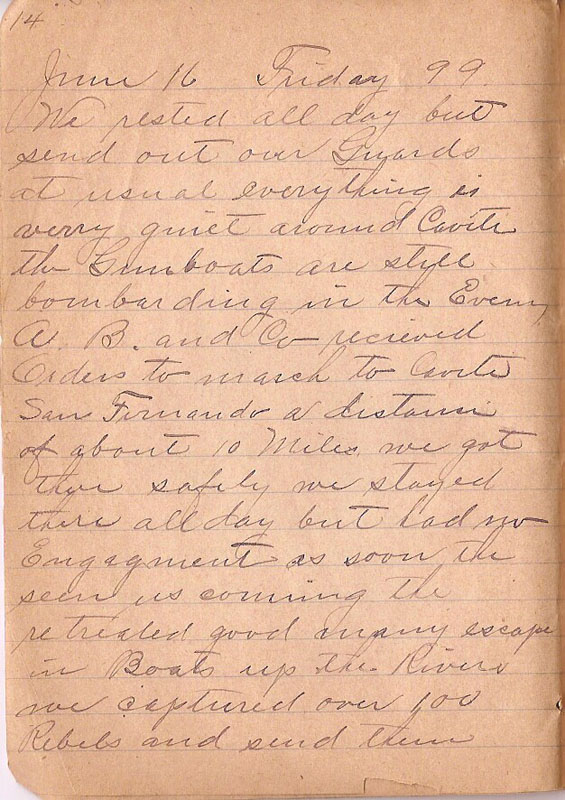 14
June 16 Friday 99
We rested all day but
send out our Guards
at usual everything is
verry quiet around Cavite
the Gunboats are still
bombarding in the Eveng
A. B. and Co recieved
Orders to march to Cavite
San Fernando a distance
of about 10 Miles we got
there safely we stayed
there all day but had no
Engagment as soon the
seen us comming the
retreated good many escape
in Boats up the River
we captured over 100
Rebels and send them